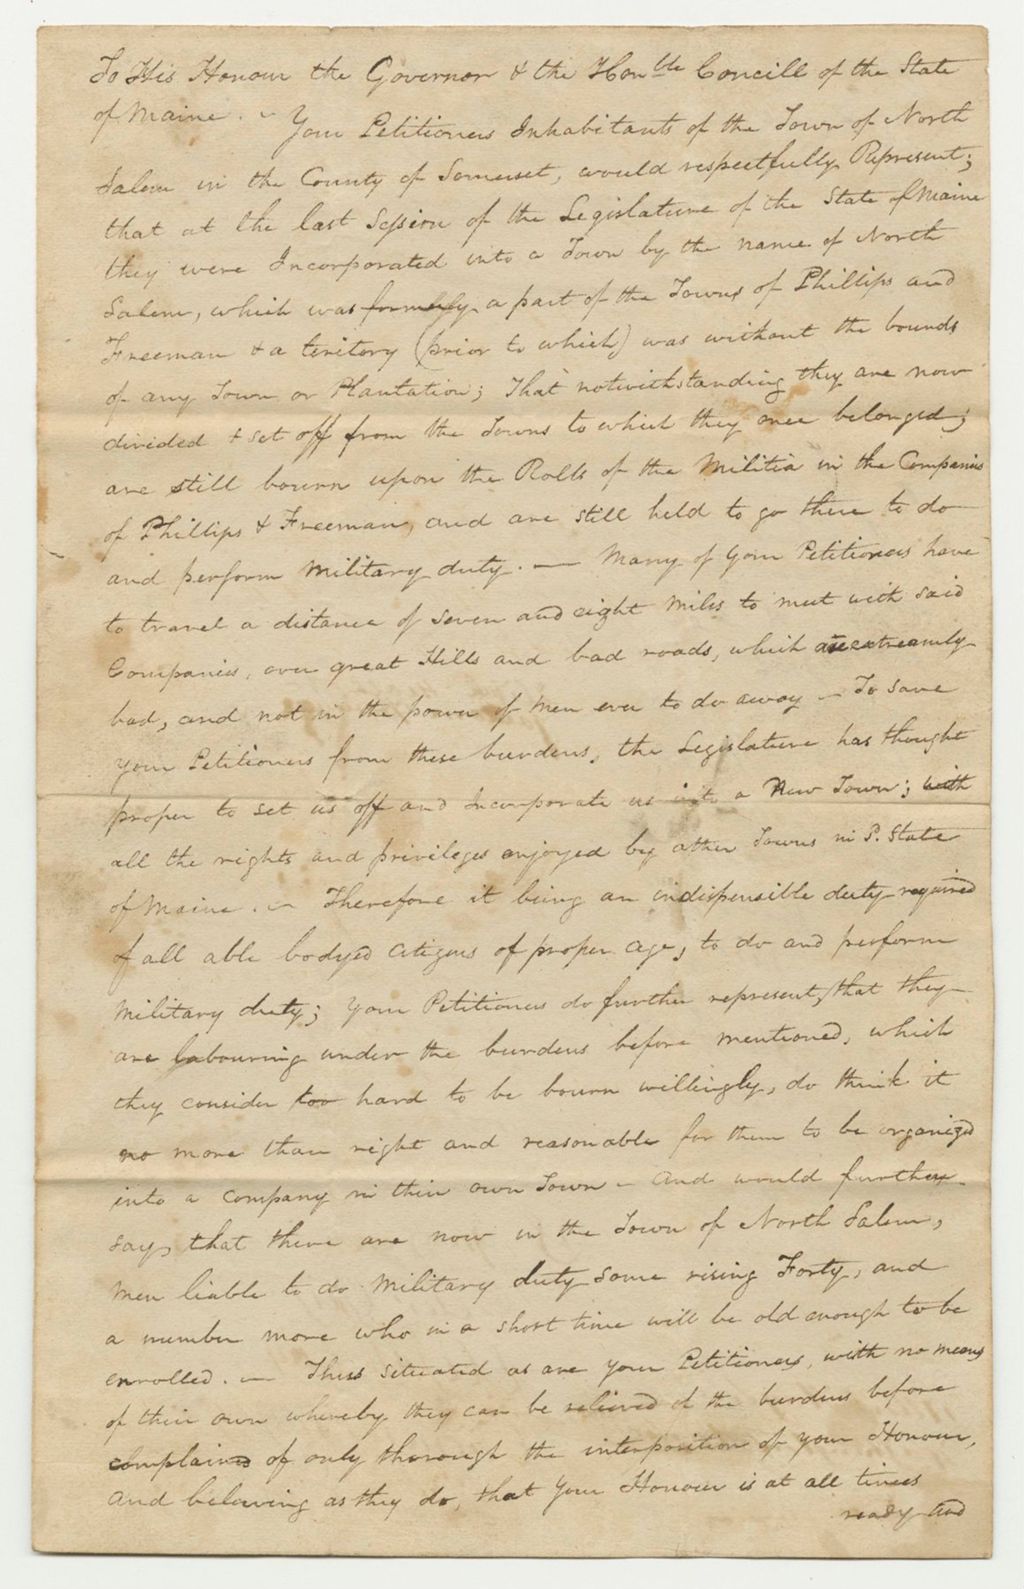 To His Honour the Governor & the Honble Concill of the State
of Maine. ~ Your Petitioners Inhabitants of the Town of North
Salem in the County of Somerset, would respectfully Represent;
that at the last Session of the Legislature of the State of Maine
they were Incorporated into a Town by the name of North
Salem, which was formerly a part of the Towns of Phillips and
Freeman & a teritory (prior to which) was without the bounds
of any Town or Plantation; That notwithstanding they are now
divided & set off from the Towns to which they once belonged;
are still bourn upon the Rolls of the Militia in the Companies
of Phillips & Freeman, and are still held to go there to do
and perform Military duty. — Many of your Petitioners have
to travel a distance of seven and eight Miles to meet with said
Companies, over great Hills and bad roads, which are extreamly
bad, and not in the power of Men ever to do away — To save
your Petitioners from these burdens, the Legislature has thought
proper to set us off and Incorporate us into a New Town; with
all the rights and privileges enjoyed by other Towns in Sd. State
of Maine. ~ Therefore it being an indispensible duty required
of all able bodyed citizens of proper age, to do and perform
Military duty; your Petitioners do further represent, that they
are labouring under the burdens before mentioned, which
they consider too hard to be bourn willingly, do think it
no more than right and reasonable for them to be organized
into a company in their own Town — And would further
say, that there are now in the Town of North Salem,
Men liable to do Military duty some rising Forty, and
a number more who in a short time will be old enough to be
enrolled. — Thus situated as are your Petitioners, with no means
of their own whereby they can be relieved of the burdens before
complained of only thorough the interposition of your Honour,
and beleiving as they do, that your Honour is at all times
ready and